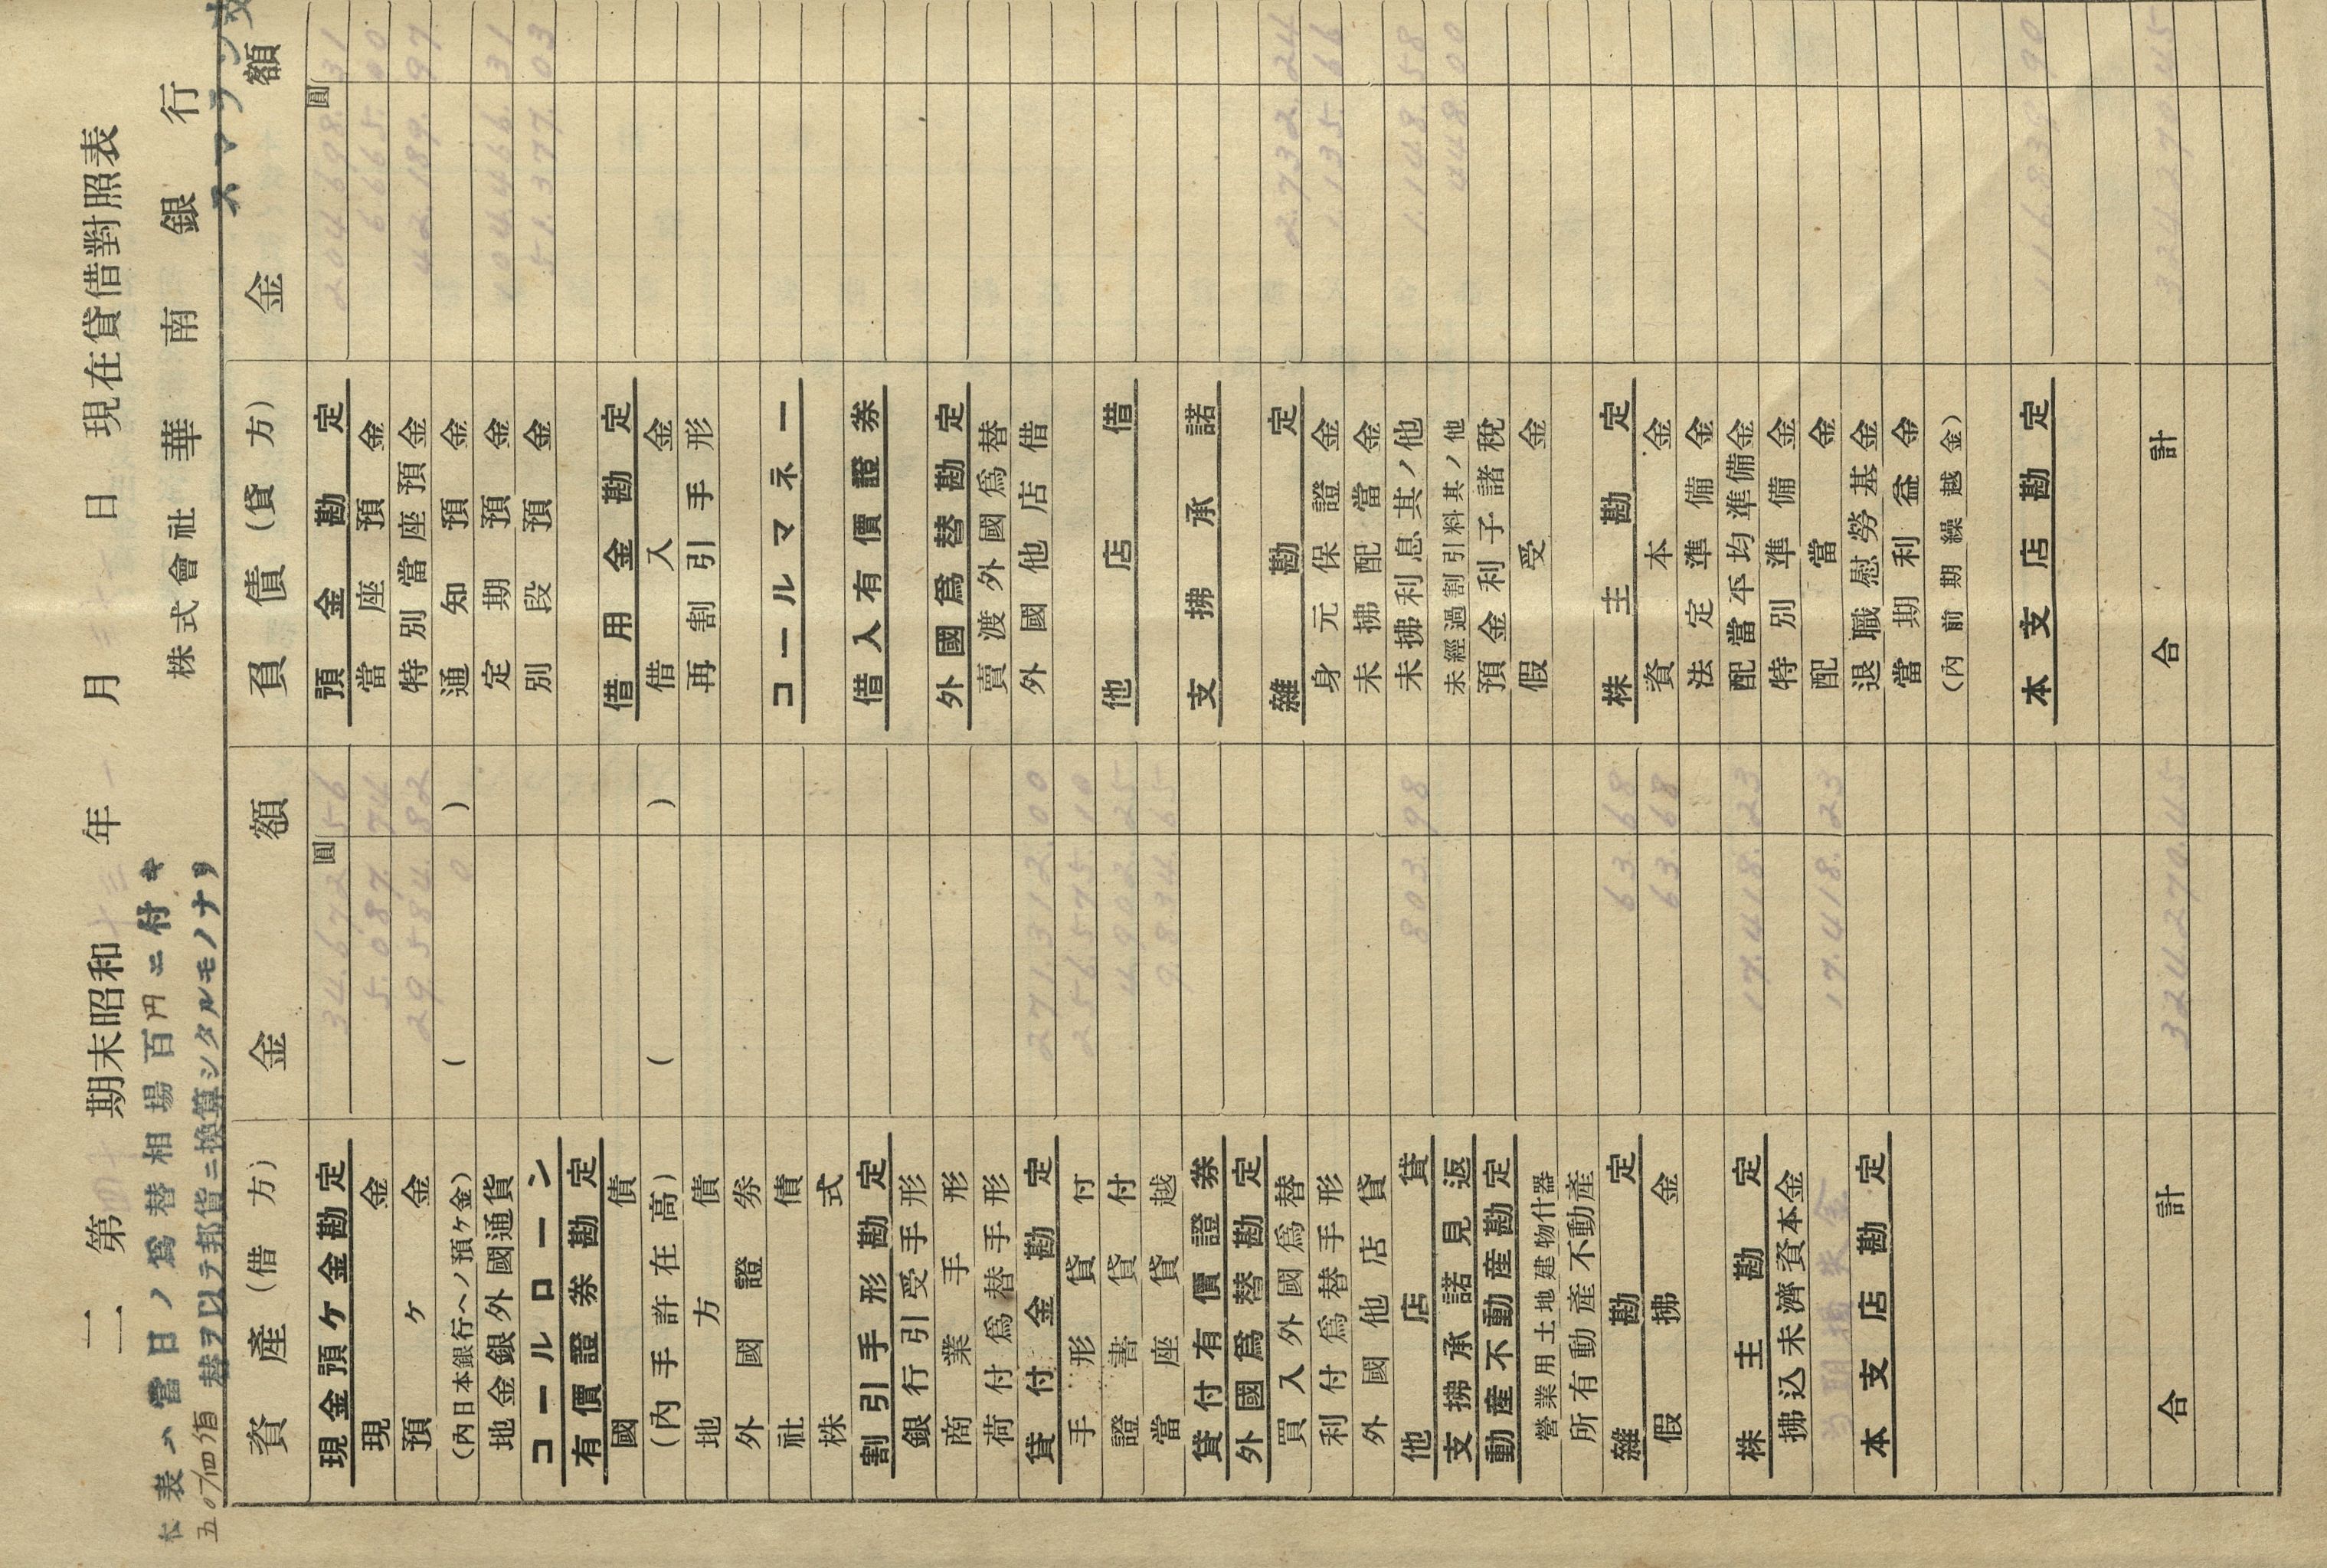 第 期末昭和十三年 月 日 現在貸借對照表
本表ハ當日ノ爲替相場百円ニ付キ
替ヲ以テ邦貨ニ換算シタルモノナリ
株式會社 華南銀行
スマラン支
資産(借方) 金額
現金預ケ金勘定 34.672 56
現金 5.087 74
預ケ金 29.584 82
(內日本銀行ヘノ預ケ金) ( 0 )
地金銀外國通貨
コールローン
有價證券勘定
國債
(內手許在高) ( )
地方債
外國證券
社債
株式
割引手形勘定
銀行引受手形
商業手形
荷付爲替手形
貸付金勘定 271.312 00
手形貸付 256.575 10
證書貸付 4.902 25
當座貸越 9.834 65
貸付有價證券
外國爲替勘定
買入外國爲替
利付爲替手形
外國他店貸
他店貸 803 98
支拂承諾見返
動產不動產勘定
營業用土地建物什器
所有動產不動產
雜勘定 63 68
假拂金 63 68
株主勘定 17.418 23
拂込未濟資本金
當期損失金 17.418 23
本支店勘定
合計 324.270 45
負債(貸方) 金額
圓
預金勘定 204.698 31
當座預金 6.665 00
特別當座預金 42.189 97
通知預金
定期預金 104.466 31
別段預金 51.377 03
借用金勘定
借入金
再割引手形
コールマネー
借入有價證券
外國爲替勘定
賣渡外國爲替
外國他店借
他店借
支拂承諾
雜勘定 2.732 24
身元保證金 1.135 66
未拂配當金
未拂利息其ノ他 1.148 58
未經過割引料其ノ他 448 00
預金利子諸稅
假受金
株主勘定
資本金
法定準備金
配當平均準備金
特別準備金
配當金
退職慰勞基金
當期利益金
(內前期繰越金)
本支店勘定 116.839 90
合計 324.270 45